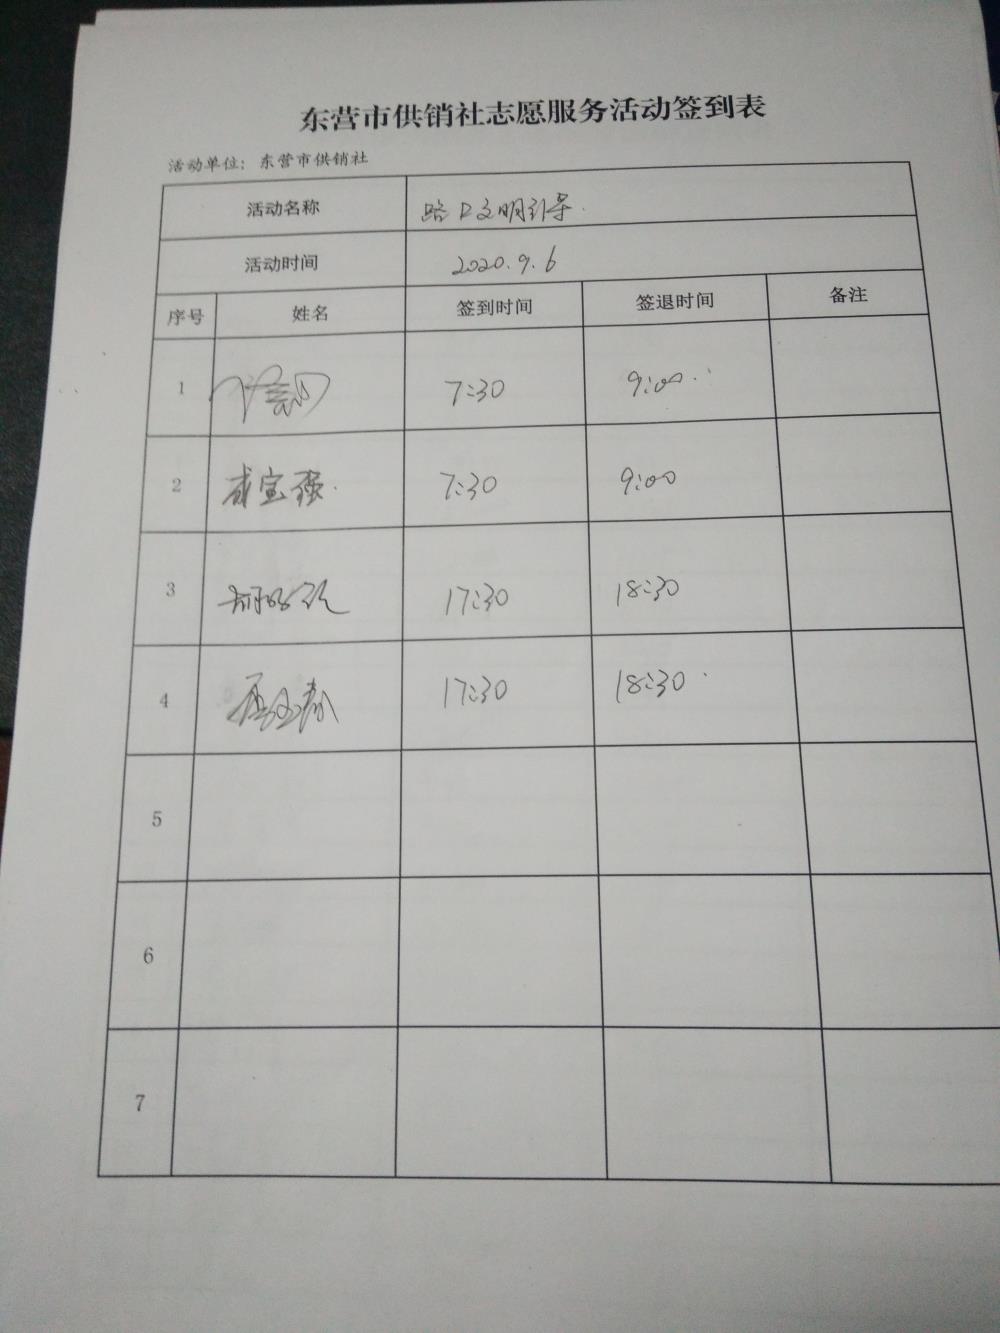 东营市供销社志愿服务活动签到表
活动单位：东营市供销社
活动名称 路口文明引导
活动时间 2020.9.6
序号 姓名 签到时间 签退时间 备注
1 7:30 9:00
2 7:30 9:00
3 17:30 18:30
4 17:30 18:30
5
6
7